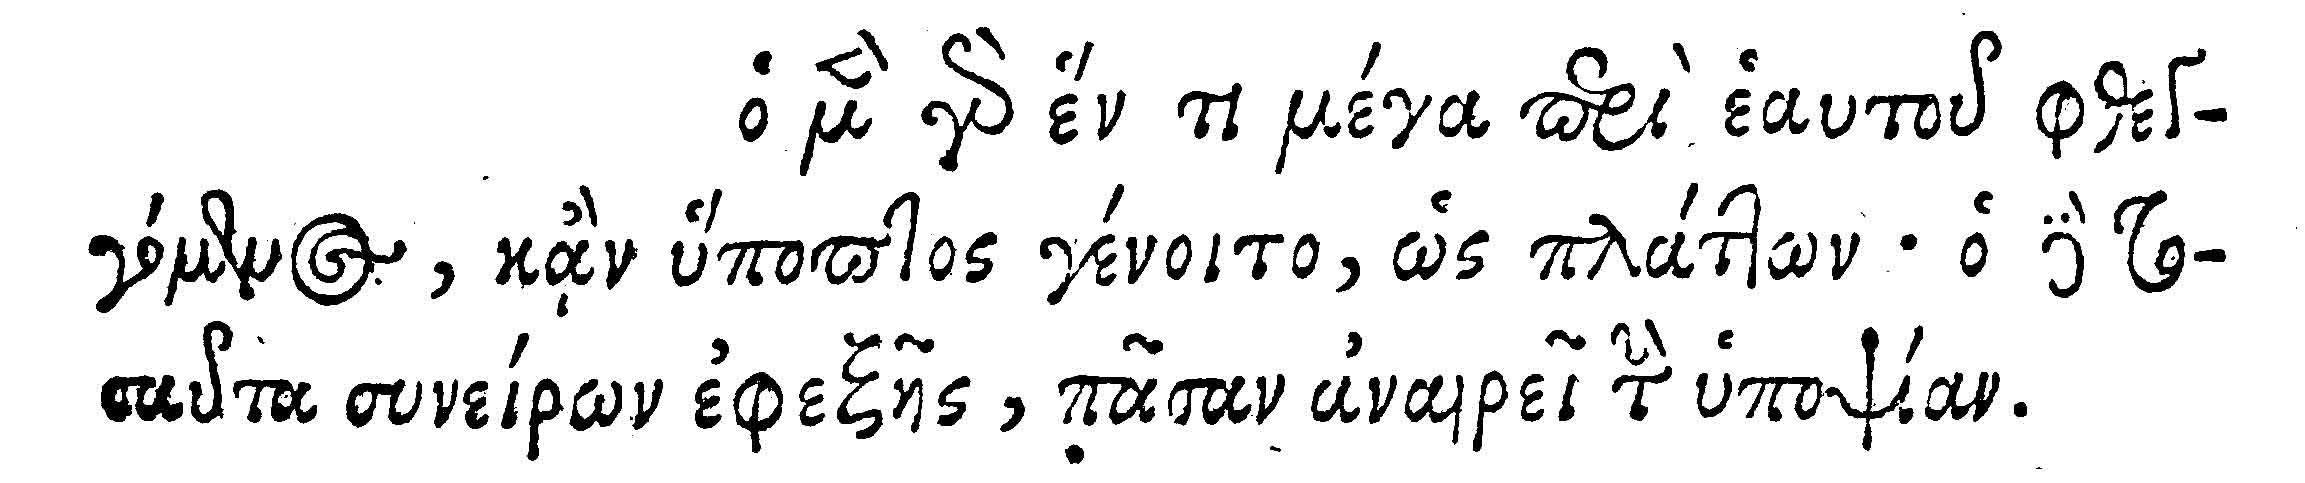 ὁ μὲν γὰρ ἕν τι μέγα περὶ ἑαυτοῦ φθεγ-
γόμενος, κᾂν ὕποπτος γένοιτο, ὡς πλάττων· ὁ δὲ το-
σαῦτα συνείρων ἐφεξῆς, πᾶσαν ἀναιρεῖ τὴν ὑποψίαν.